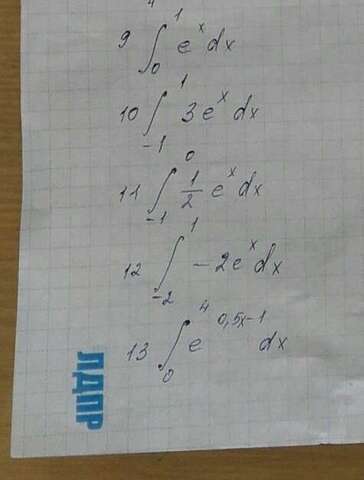 9 ∫₀¹ eˣ dx
10 ∫₋₁¹ 3eˣ dx
11 ∫₋₁⁰ 1/2 eˣ dx
12 ∫₋₂¹ -2eˣ dx
13 ∫₀⁴ e^(0,5x-1) dx
ЛДПР